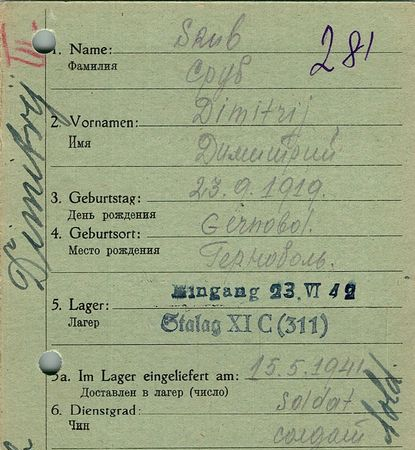 281
III
Dimitrij
1. Name: Srub
Фамилия Сруб
2. Vornamen: Dimitrij
Имя Димитрий
3. Geburtstag: 23.9.1919.
День рождения
4. Geburtsort:
Место рождения
5. Lager: Eingang 23. VI 42
Лагер Stalag XI C (311)
5a. Im Lager eingeliefert am: 15.5.1941
Доставлен в лагер (число)
6. Dienstgrad: soldat
Чин солдат
Sold.